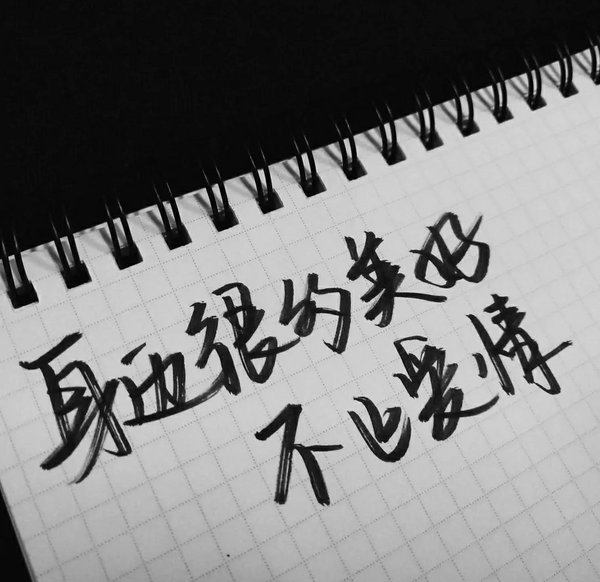 身边很的美好
不止爱情